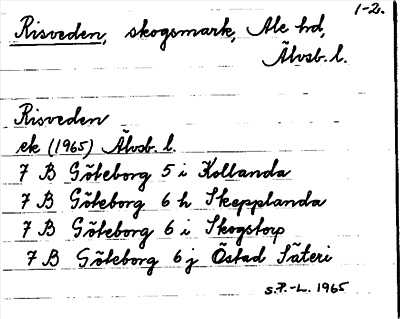 1-2.
Risveden, skogsmark, Ale hd,
Älvsb. l.
Risveden
ek (1965) Älvsb. l.
7 B Göteborg 5 i Kollanda
7 B Göteborg 6 h Skepplanda
7 B Göteborg 6 i Skogstorp
7 B Göteborg 6 j Östad Säteri
S.P.-L. 1965